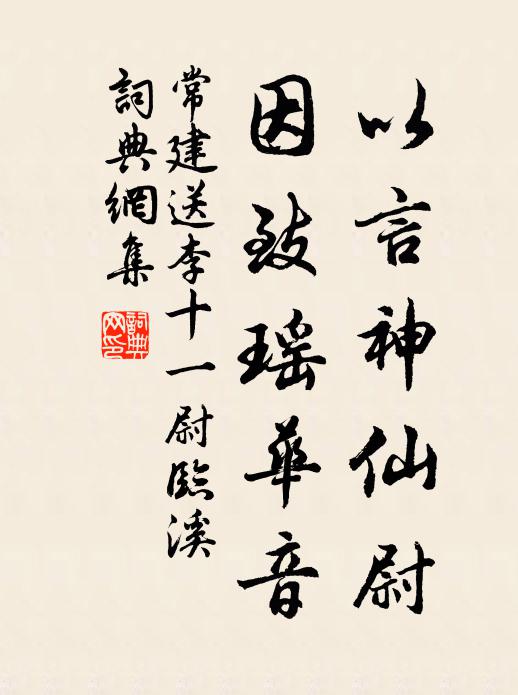 以言神仙尉
因致瑶華音
常建送李十一尉臨溪
詞典網集
詞典
网印